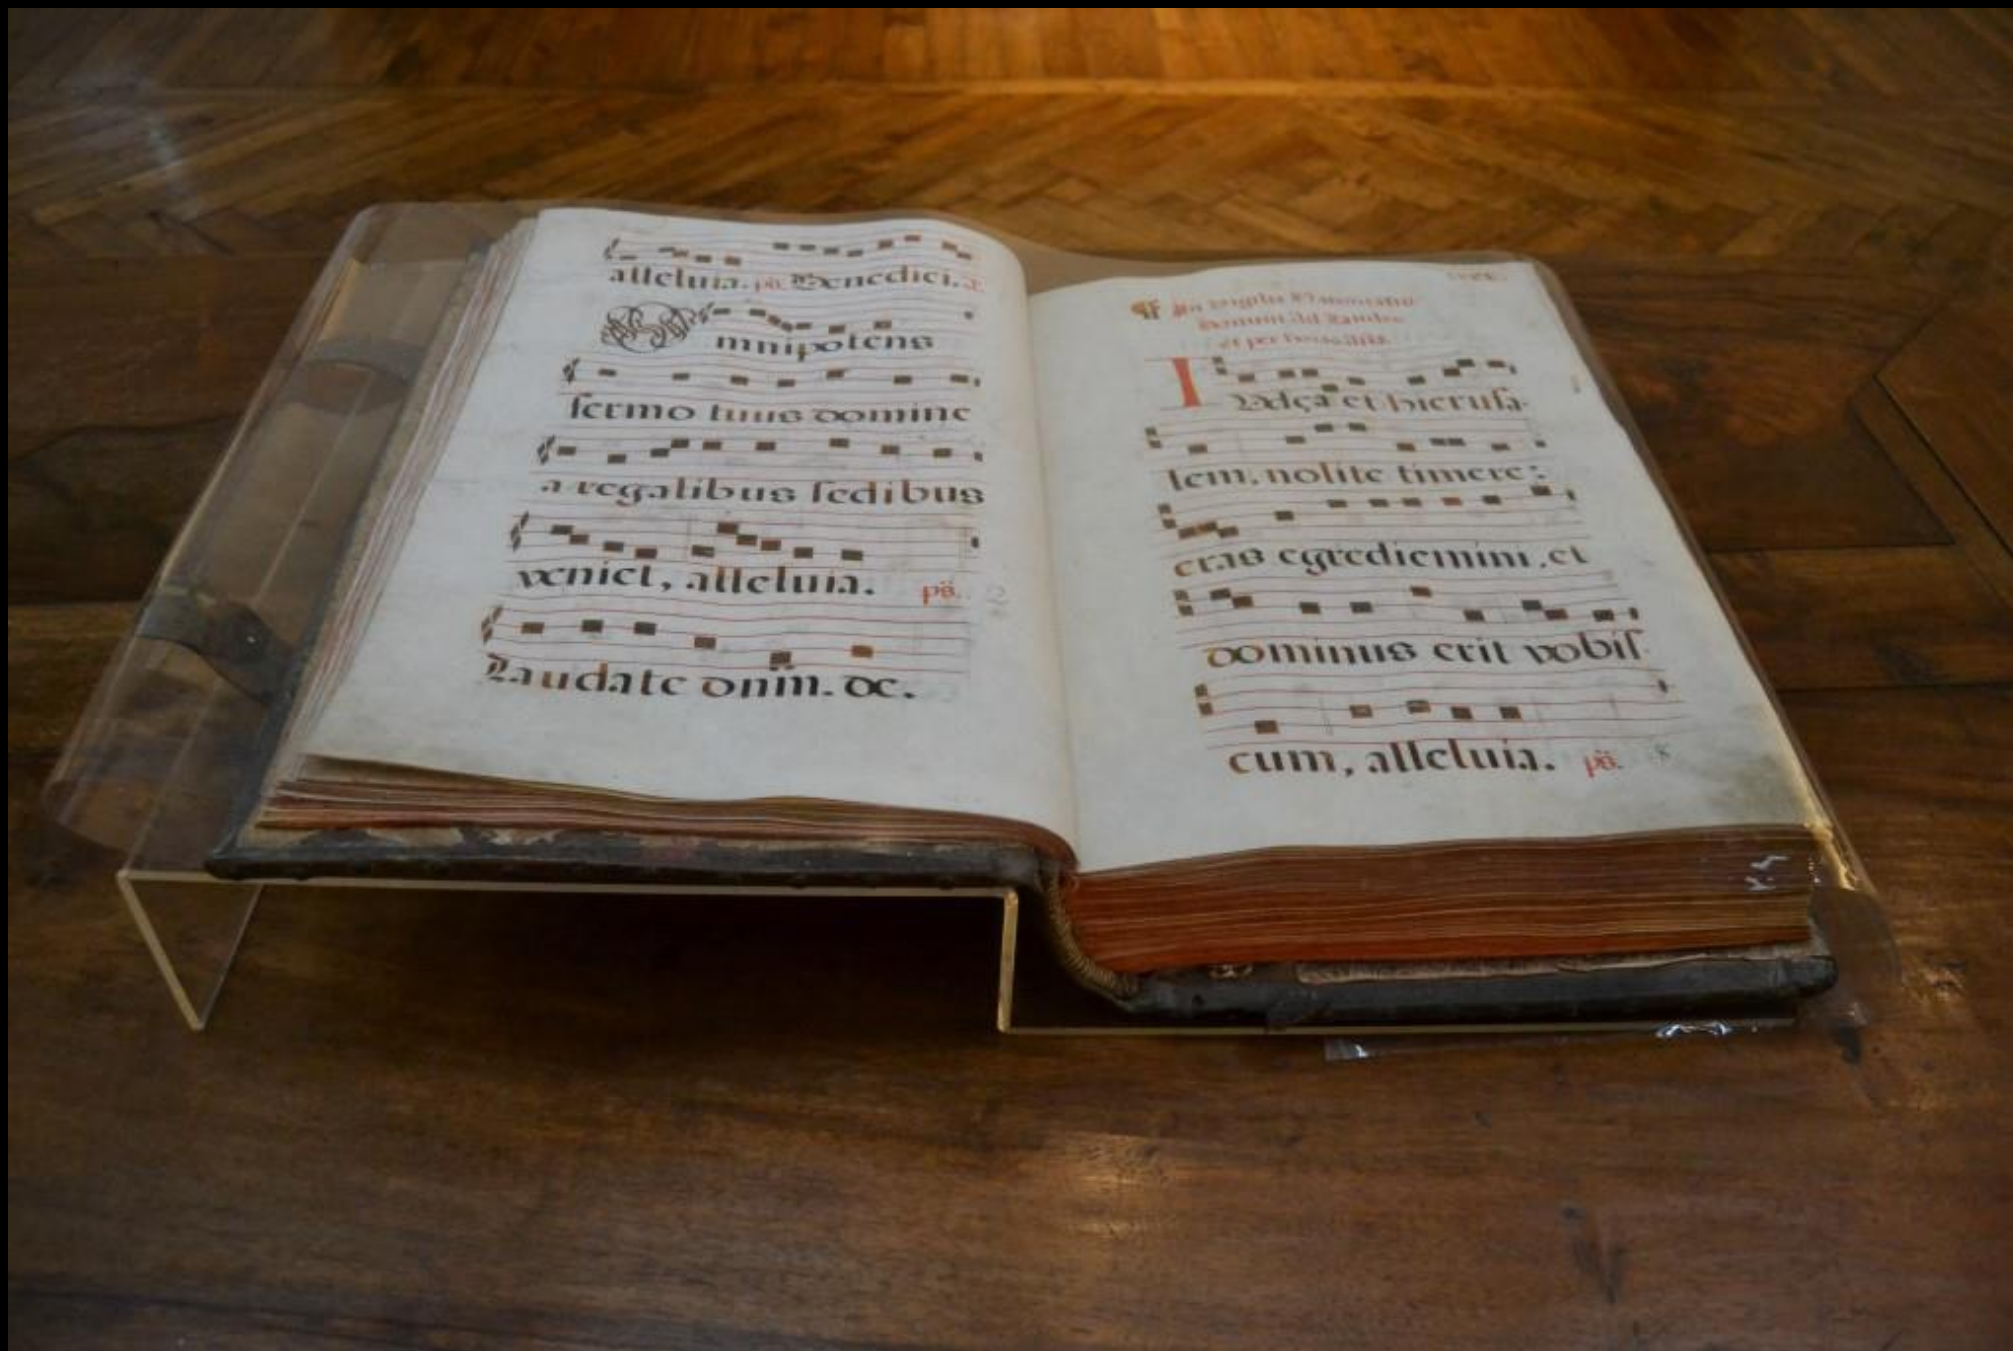 alleluia. ps. Benedici. a.
Omnipotens
sermo tuus domine
a regalibus sedibus
veniet, alleluia. ps.
Laudate dnm. de.
In vigilia
Domini ad Laudes
et per horas
Iudça et hierusa-
lem, nolite timere:
cras egrediemini, et
dominus erit vobis-
cum, alleluia. ps. 8